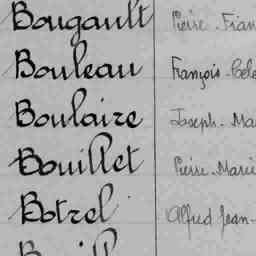 Bougault Pierre-Fran
Bouleau François-Cele
Boulaire Joseph-Ma
Bouillet Pierre-Marie
Botrel Alfred Jean-